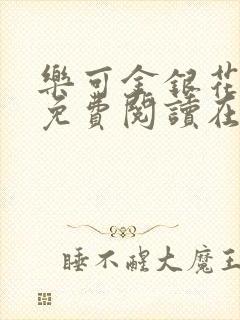 樂可金銀花
免費閱讀在
睡不醒大魔王